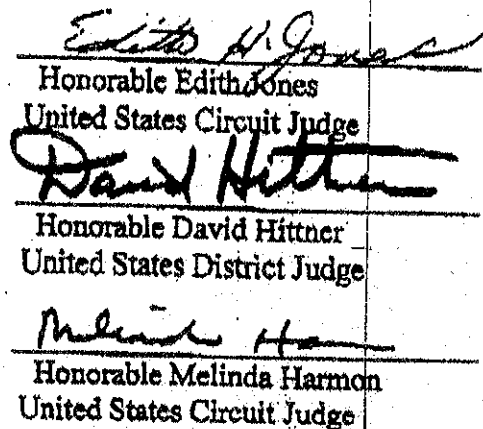 Edith H. Jones
Honorable Edith Jones
United States Circuit Judge
David Hittner
Honorable David Hittner
United States District Judge
Melinda Harmon
Honorable Melinda Harmon
United States Circuit Judge